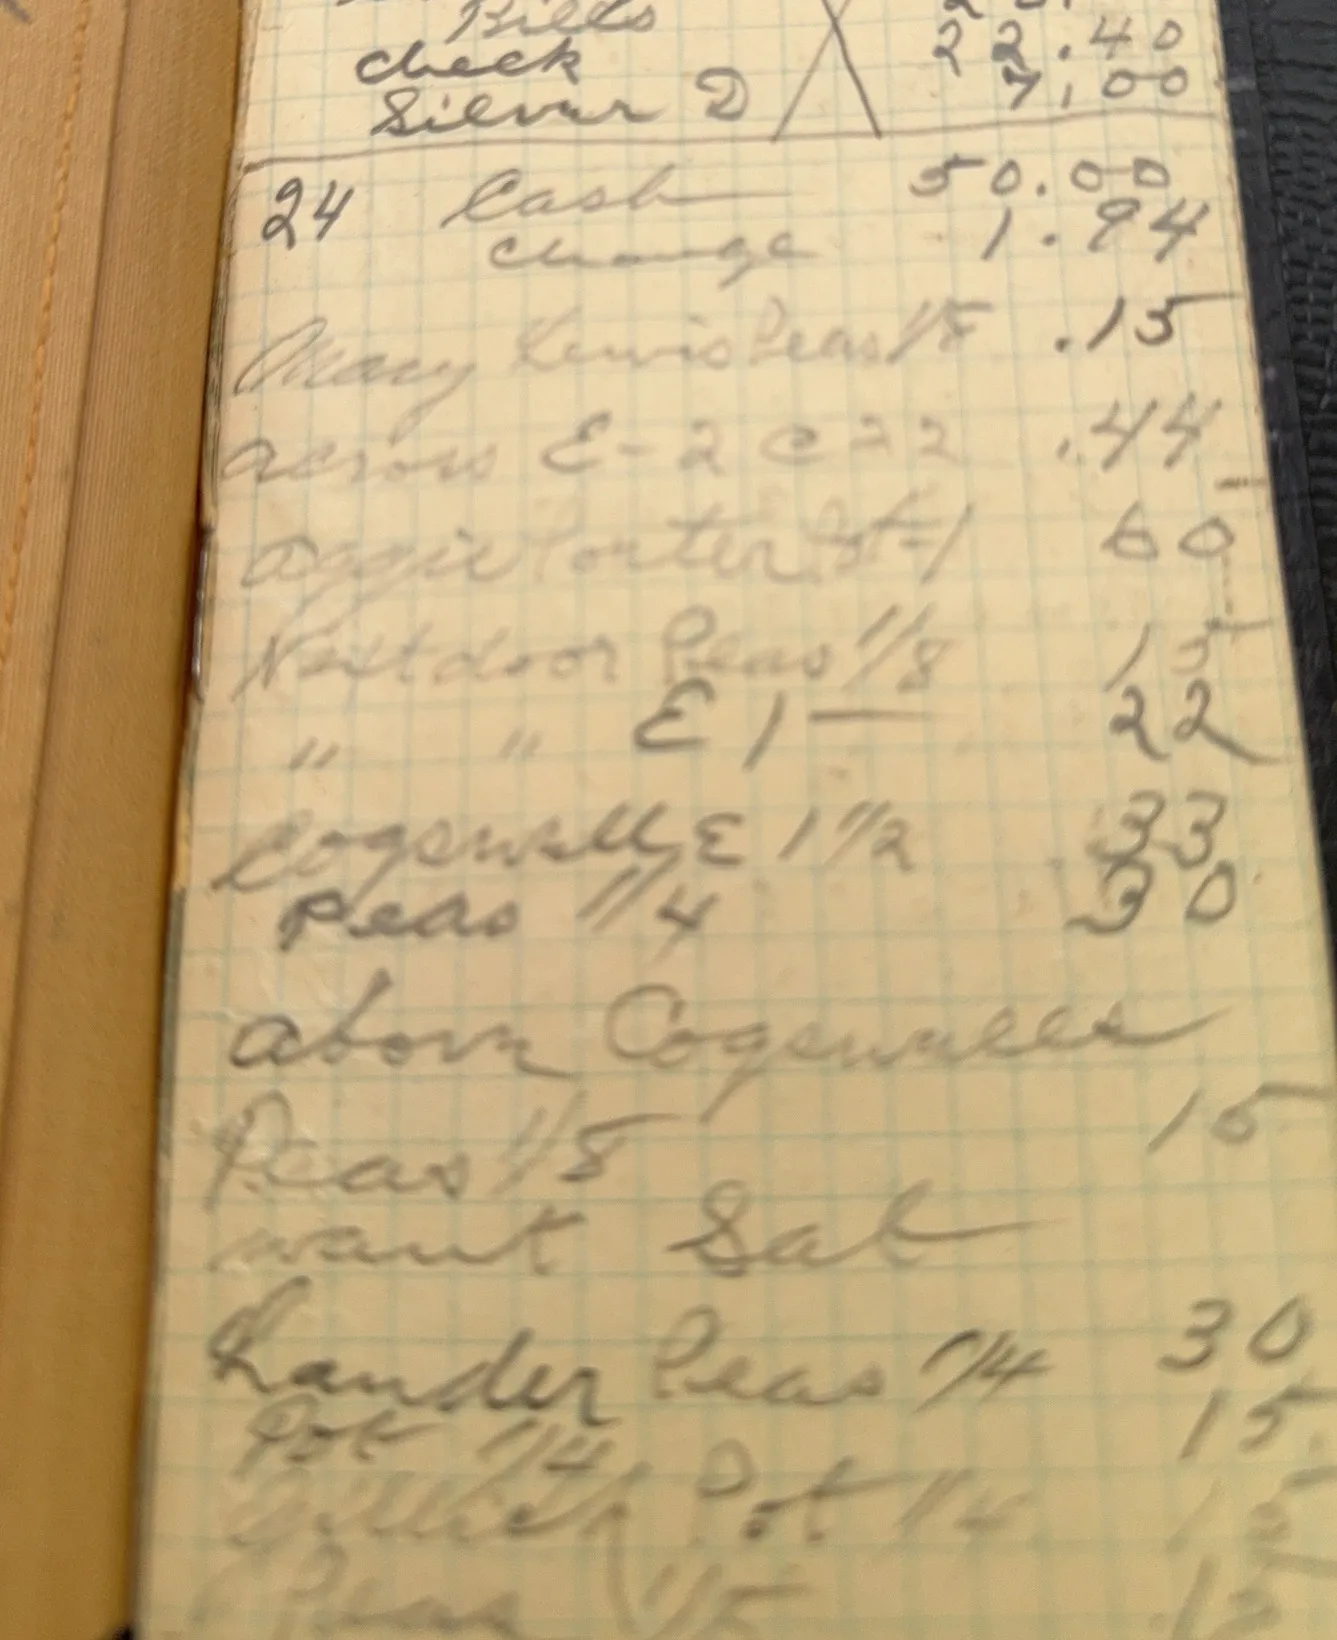 Bills
check 22.40
Silver D 7.00
24 Cash 50.00
change 1.94
Mary Lewis Peas 1/8 .15
across E-2 @ 22 .44
Aggie Porter Pot-1 60
Next door Peas 1/8 15
" " E 1 — 22
Cogswell E 1 1/2 33
Peas 1/4 30
above Cogswells
Peas 1/8 15
want Sat
Lander Peas 1/4 30
Pot 1/4 15
Pot 1/4 15
Peas 1/8 15